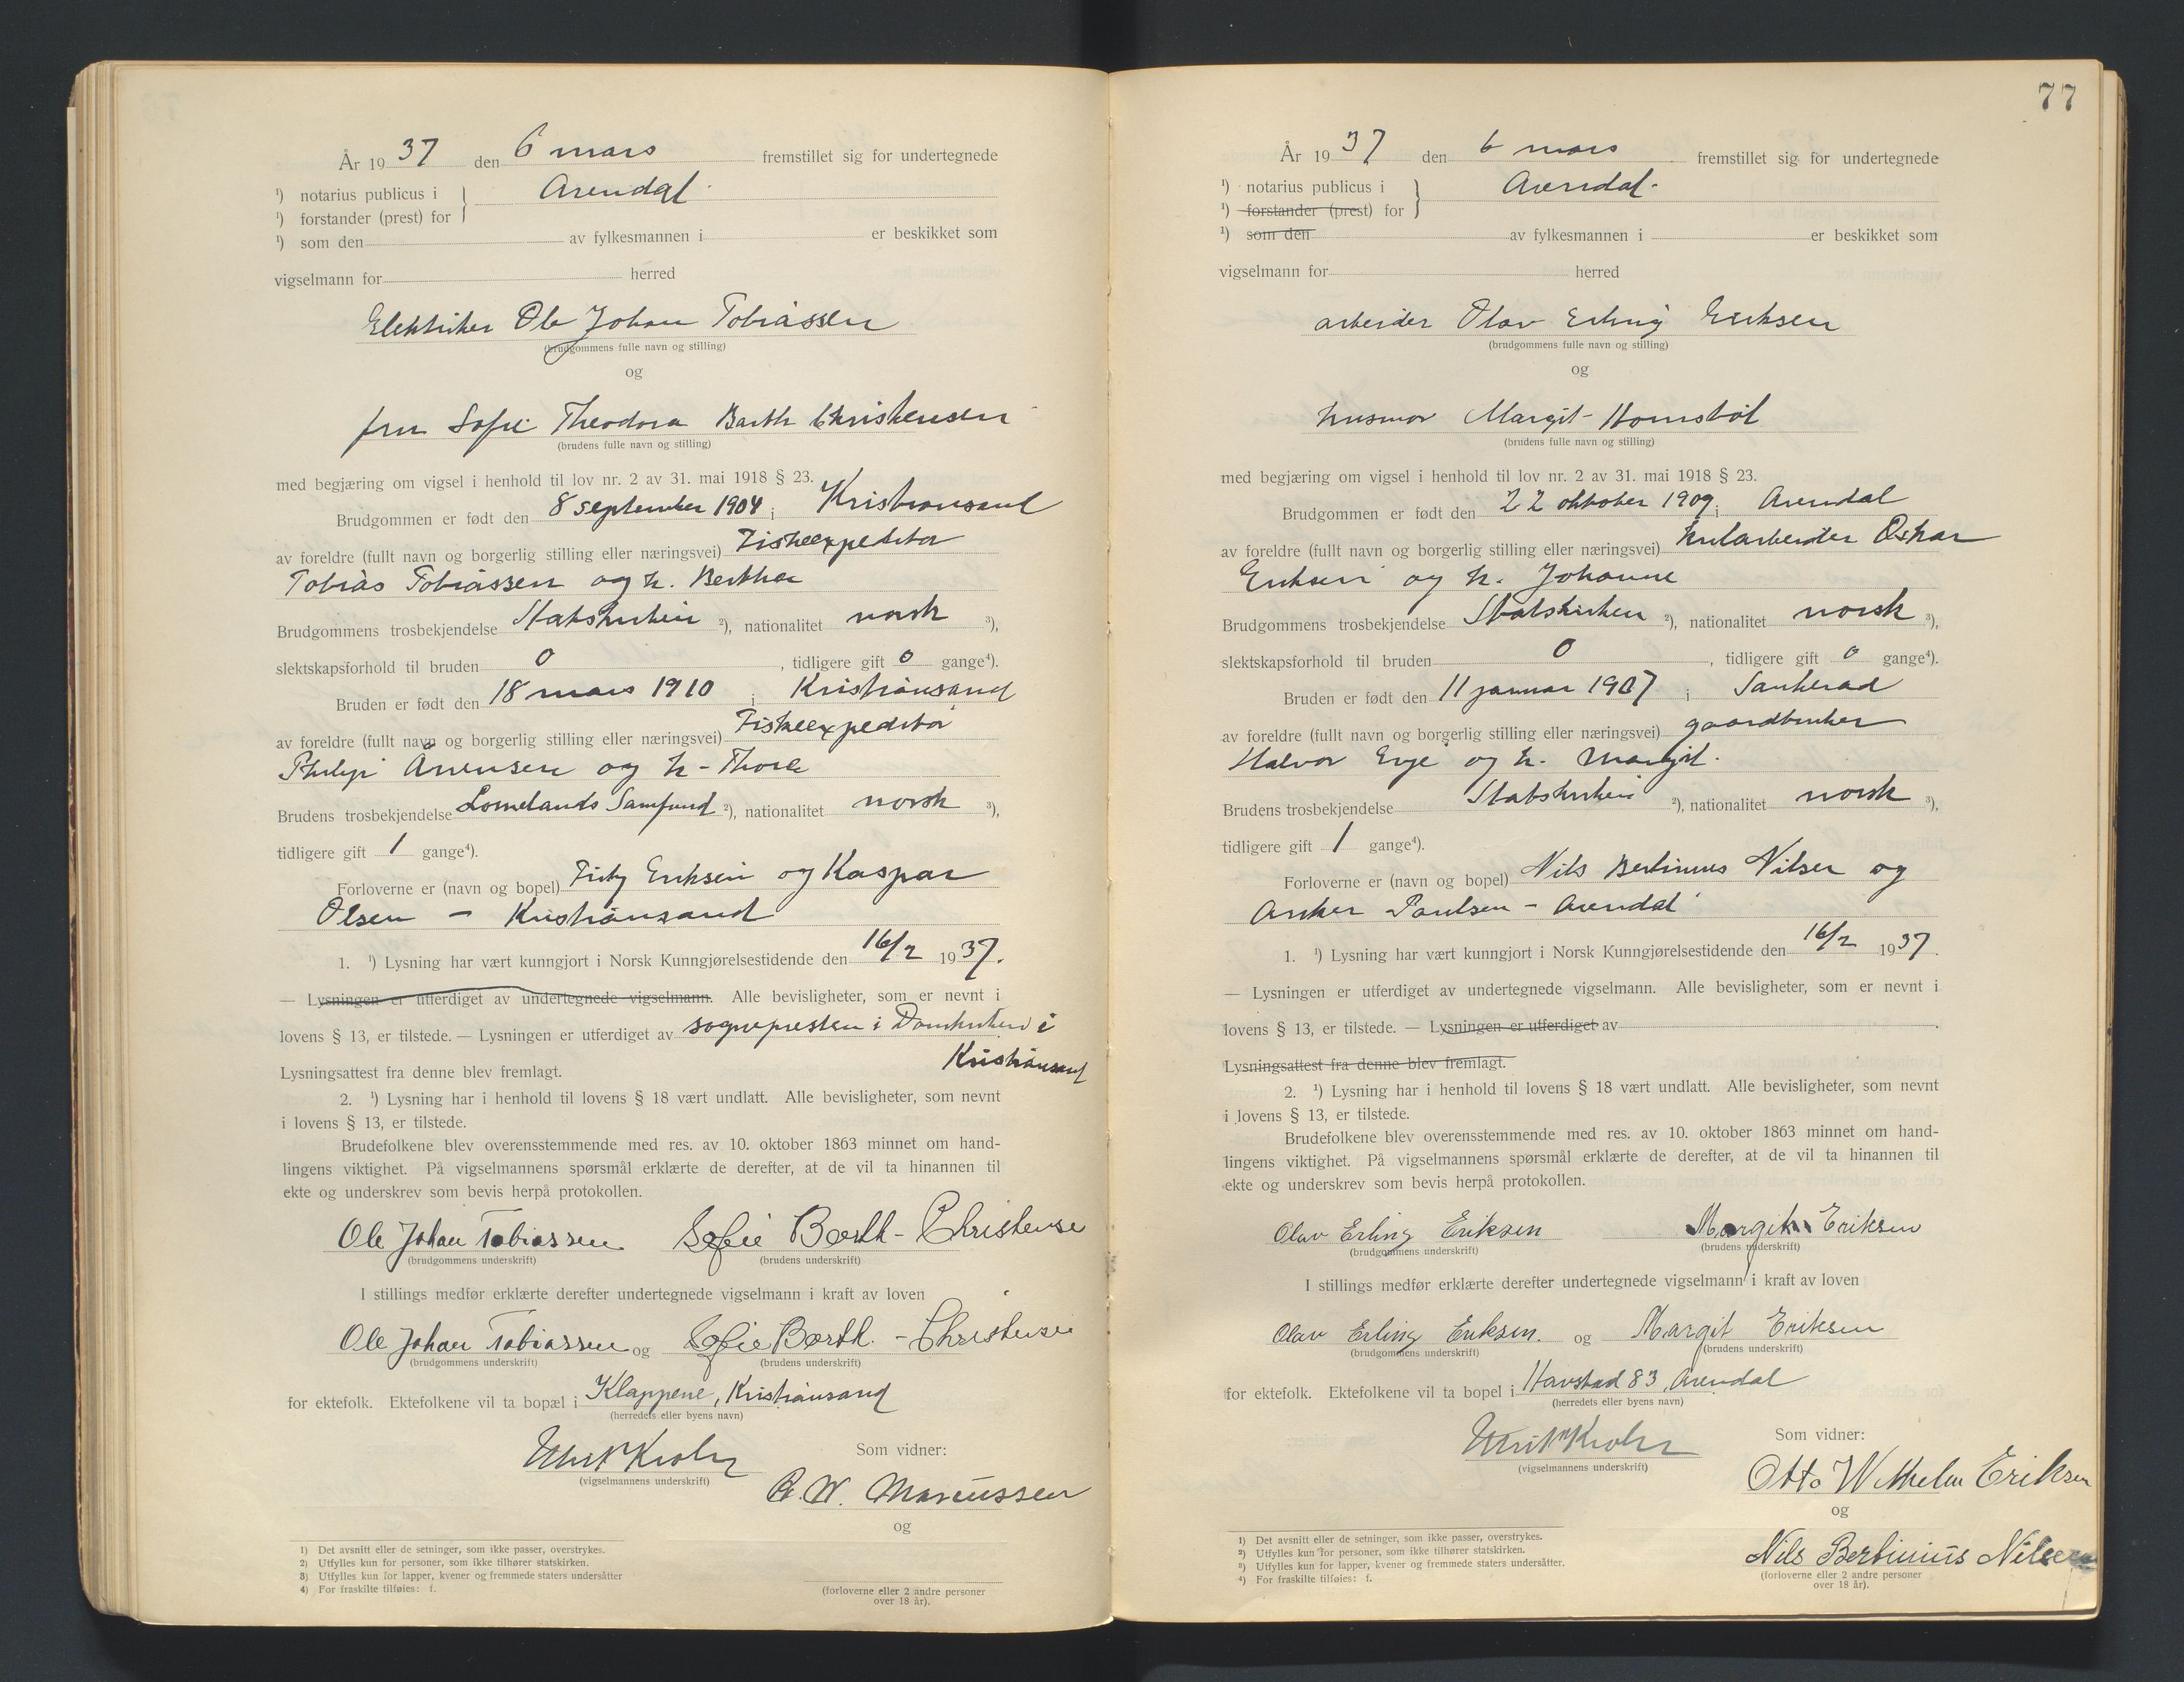 År 1937 den 6 mars fremstillet sig for undertegnede
¹) notarius publicus i } Arendal
¹) forstander (prest) for
¹) som den av fylkesmannen i er beskikket som
vigselmann for herred
Elektriker Ole Johan Tobiassen
(brudgommens fulle navn og stilling)
og
fru Sofie Theodora Barth Christensen
(brudens fulle navn og stilling)
med begjæring om vigsel i henhold til lov nr. 2 av 31. mai 1918 § 23.
Brudgommen er født den 8 september 1904 i Kristiansand
av foreldre (fullt navn og borgerlig stilling eller næringsvei) Fiskeexpeditør
Tobias Tobiassen og h. Bertha
Brudgommens trosbekjendelse Statskirken ²), nationalitet norsk ³),
slektskapsforhold til bruden 0, tidligere gift 0 gange⁴).
Bruden er født den 18 mars 1910 i Kristiansand
av foreldre (fullt navn og borgerlig stilling eller næringsvei) Fiskeexpeditør
Philip Arensen og h. Thora
Brudens trosbekjendelse Lomelands Samfund ²), nationalitet norsk ³),
tidligere gift 1 gange⁴).
Forloverne er (navn og bopel) Eriksen og Kaspar
Olsen - Kristiansand
1. ¹) Lysning har vært kunngjort i Norsk Kunngjørelsestidende den 16/2 1937.
— Lysningen er utferdiget av undertegnede vigselmann. Alle bevisligheter, som er nevnt i
lovens § 13, er tilstede. — Lysningen er utferdiget av sognepresten i Domkirken i
Kristiansand
Lysningsattest fra denne blev fremlagt.
2. ¹) Lysning har i henhold til lovens § 18 vært undlatt. Alle bevisligheter, som nevnt
i lovens § 13, er tilstede.
Brudefolkene blev overensstemmende med res. av 10. oktober 1863 minnet om hand-
lingens viktighet. På vigselmannens spørsmål erklærte de derefter, at de vil ta hinannen til
ekte og underskrev som bevis herpå protokollen.
Ole Johan Tobiassen Sofie Barth-Christense
(brudgommens underskrift) (brudens underskrift)
I stillings medfør erklærte derefter undertegnede vigselmann i kraft av loven
Ole Johan Tobiassen og Sofie Barth.-Christensen
(brudgommens underskrift) (brudens underskrift)
for ektefolk. Ektefolkene vil ta bopæl i Klappene, Kristiansand
(herredets eller byens navn)
Krohn
(vigselmannens underskrift)
Som vidner:
W. Marcussen
og
(forloverne eller 2 andre personer
over 18 år).
1) Det avsnitt eller de setninger, som ikke passer, overstrykes.
2) Utfylles kun for personer, som ikke tilhører statskirken.
3) Utfylles kun for lapper, kvener og fremmede staters undersåtter
4) For fraskilte tilføies: f.
77
År 1937 den 6 mars fremstillet sig for undertegnede
¹) notarius publicus i } Arendal
¹) forstander (prest) for
¹) som den av fylkesmannen i er beskikket som
vigselmann for herred
arbeider Olav Erling Eriksen
(brudgommens fulle navn og stilling)
og
husmor Margit Homsbøl
(brudens fulle navn og stilling)
med begjæring om vigsel i henhold til lov nr. 2 av 31. mai 1918 § 23.
Brudgommen er født den 22 oktober 1909 i Arendal
av foreldre (fullt navn og borgerlig stilling eller næringsvei) kularbeider Oskar
Eriksen og h. Johanne
Brudgommens trosbekjendelse Statskirken ²), nationalitet norsk ³),
slektskapsforhold til bruden 0, tidligere gift 0 gange⁴).
Bruden er født den 11 januar 1907 i Sauherad
av foreldre (fullt navn og borgerlig stilling eller næringsvei) gaardbruker
Halvor Evje og h. Margit.
Brudens trosbekjendelse Statskirken ²), nationalitet norsk ³),
tidligere gift 1 gange⁴).
Forloverne er (navn og bopel) Nils Bertinius Nilsen og
Anker Paulsen - Arendal
1. ¹) Lysning har vært kunngjort i Norsk Kunngjørelsestidende den 16/2 1937.
— Lysningen er utferdiget av undertegnede vigselmann. Alle bevisligheter, som er nevnt i
lovens § 13, er tilstede. — Lysningen er utferdiget av
Lysningsattest fra denne blev fremlagt.
2. ¹) Lysning har i henhold til lovens § 18 vært undlatt. Alle bevisligheter, som nevnt
i lovens § 13, er tilstede.
Brudefolkene blev overensstemmende med res. av 10. oktober 1863 minnet om hand-
lingens viktighet. På vigselmannens spørsmål erklærte de derefter, at de vil ta hinannen til
ekte og underskrev som bevis herpå protokollen.
Olav Erling Eriksen Margit Eriksen
(brudgommens underskrift) (brudens underskrift)
I stillings medfør erklærte derefter undertegnede vigselmann i kraft av loven
Olav Erling Eriksen. og Margit Eriksen
(brudgommens underskrift) (brudens underskrift)
for ektefolk. Ektefolkene vil ta bopel i Havstad 83, Arendal
(herredets eller byens navn)
Krohn
(vigselmannens underskrift)
Som vidner:
Otto Wilhelm Eriksen
og
Nils Bertinius Nilsen
(forloverne eller 2 andre personer
over 18 år).
1) Det avsnitt eller de setninger, som ikke passer, overstrykes.
2) Utfylles kun for personer, som ikke tilhører statskirken.
3) Utfylles kun for lapper, kvener og fremmede staters undersåtter.
4) For fraskilte tilføies: f.